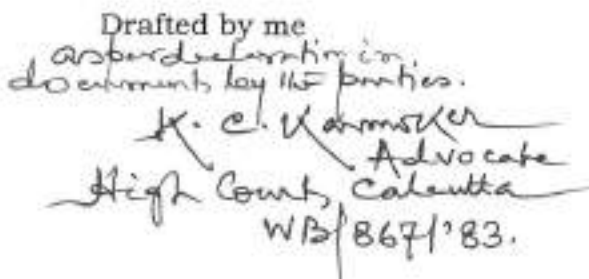 Drafted by me
as per declaration in
documents by the parties.
K. C. Karmoker
Advocate
High Court, Calcutta
WB/867/'83.